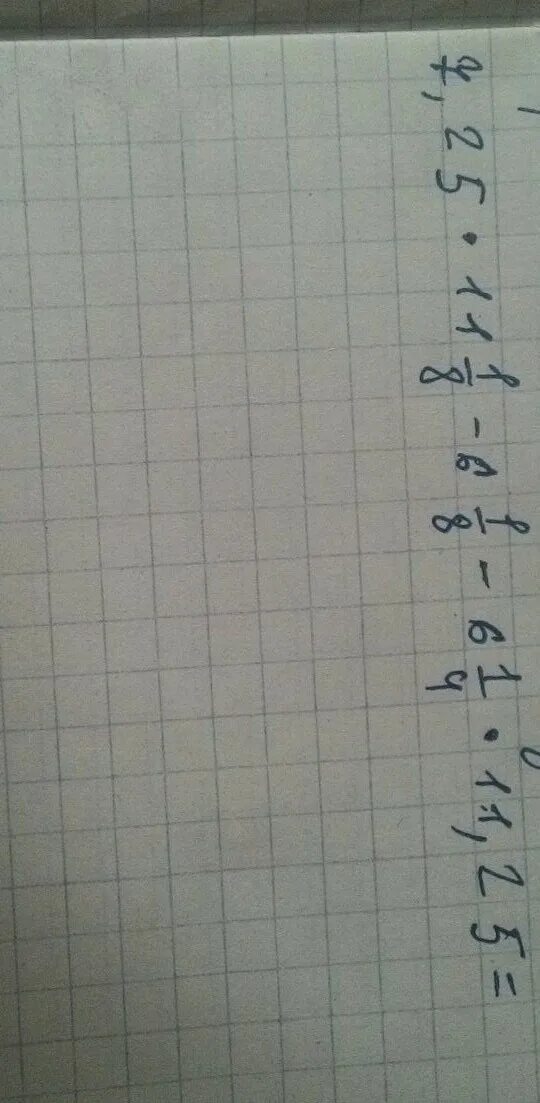 7,25 · 11 1/8 - 6 1/8 - 6 1/4 · 11,25 =